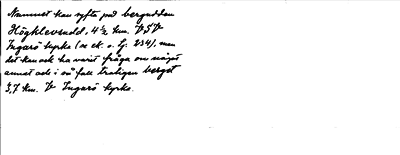 Namnet kan syfta på bergudden
Högklevsudd, 4 ½ km. V,SV
Ingarö kyrka (se ek. s. Gj. 234), men
det kan ock ha varit fråga om något
annat och i så fall troligen berget
3,7 km. V Ingarö kyrka.